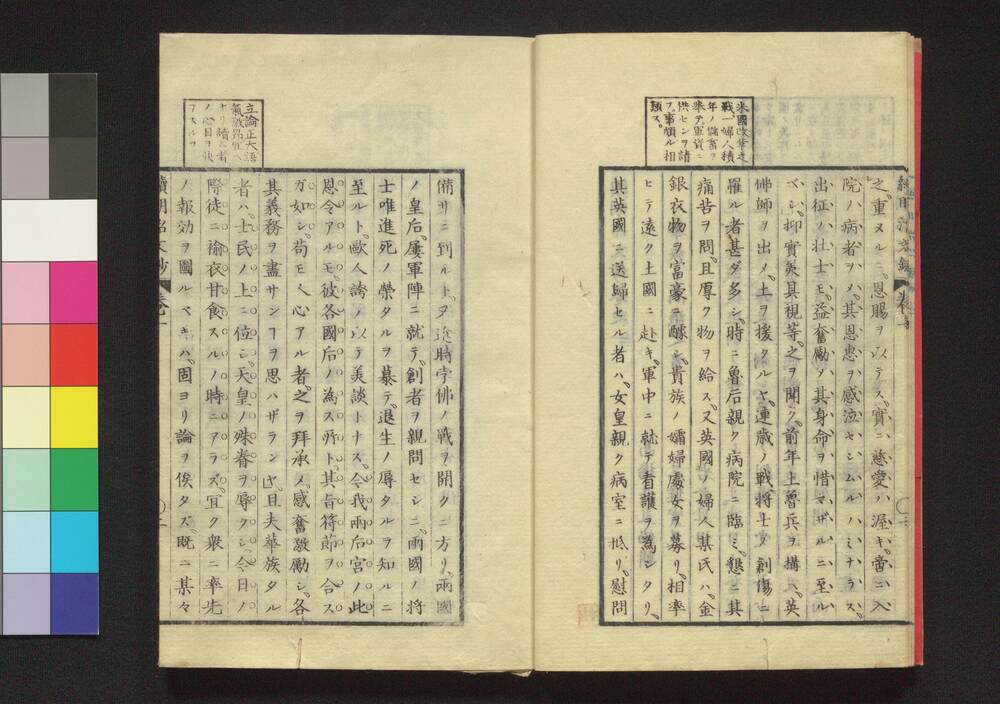 之ヲ重ヌルニ、恩賜ヲ以テス、實ニ慈愛ノ渥キ、啻ニ入
院ノ病者ヲメ、其恩惠ヲ感泣セシムルノミナラズ、
出征ノ壮士モ、益奮勵メ其身命ヲ惜マザルニ至ル
ベシ、抑實奏具視等、之ヲ聞ク、前年土魯兵ヲ搆ヘ、英
佛師ヲ出メ、土ヲ援クルヤ、連歳ノ戰、將士ノ創傷ニ
罹ル者甚ダ多シ、時ニ魯后親ク病院ニ臨ミ、懇ニ其
痛苦ヲ問、且厚ク物ヲ給ス、又英國ノ婦人某氏ハ、金
銀衣物ヲ富豪ニ醵シ、貴族ノ孀婦處女ヲ募リ、相率
ヒテ遠ク土國ニ赴キ、軍中ニ就テ看護ヲ為シタリ、
其英國ニ送歸セル者ハ、女皇親ク病室ニ抵リ、慰問
米國改革之
戰、一婦人積
年ノ儲蓄ヲ
挙テ、軍資ニ
供センヲ請
フ、事頗ル相
類ス、
備サニ到ルト、又近時孛佛ノ戰ヲ開クニ方リ、兩國
ノ皇后、屢軍陣ニ就テ、創者ヲ親問セシニ、兩國ノ將
士唯進死ノ榮タルヲ慕テ、退生ノ辱タルヲ知ルニ
至ルト、歐人誇ノ以テ美談トナス、今我兩后宮ノ此
恩令アルモ、彼各國后ノ為ス所ト、其旨符節ヲ合ス
ガ如シ、苟モ人心アル者、之ヲ拜承メ、感奮激勵シ、各
其義務ヲ盡サンヿヲ思ハザランヤ、且夫華族タル
者ハ、士民ノ上ニ位シ、天皇ノ殊眷ヲ辱クシ、今日ノ
際徒ニ褕衣甘食スルノ時ニアラズ、宜ク衆ニ率先
ノ報効ヲ圖ルベキハ、固ヨリ論ヲ俟タズ、既ニ某々
立論正大語